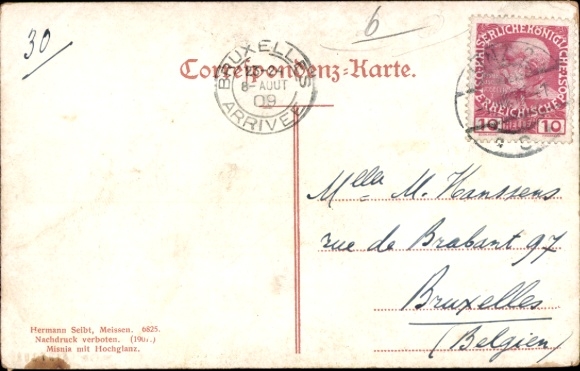 30
6
BRUXELLES
8-AOUT
09
ARRIVEE
Correspondenz-Karte.
10 10
Mlle M. Hanssens
rue de Brabant 97
Bruxelles
(Belgien)
Hermann Seibt, Meissen. 6825.
Nachdruck verboten.
Misnia mit Hochglanz.